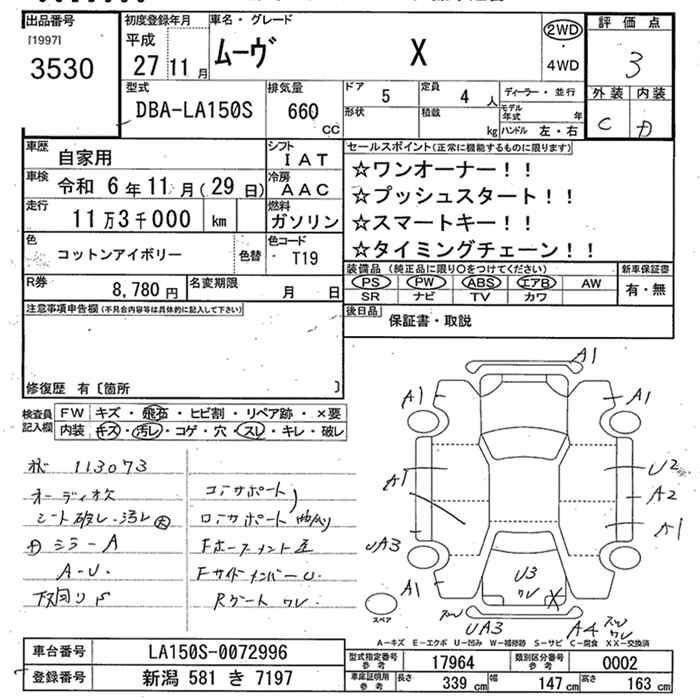 出品番号
[1997]
3530
初度登録年月
平成
27 11 月
車名・グレード
ムーヴ X
2WD
・
4WD
評価点
3
外装 内装
C D
型式
DBA-LA150S
排気量
660 CC
ドア 5
形状
定員 4 人
積載 kg
ディーラー・並行
モデル年式 年
ハンドル 左・右
車歴 自家用
シフト IAT
車検 令和 6年11月(29日)
冷房 AAC
走行 11万3千000 km
燃料 ガソリン
色 コットンアイボリー
色替
色コード T19
R券 8,780円
名変期限 月 日
セールスポイント(正常に機能するものに限ります)
☆ワンオーナー!!
☆プッシュスタート!!
☆スマートキー!!
☆タイミングチェーン!!
装備品 (純正品に限り○をつけてください)
PS PW ABS エアB AW
SR ナビ TV カワ
新車保証書
有・無
後日品 保証書・取説
注意事項申告欄(不具合内容等は具体的に記入して下さい)
修復歴 有〔箇所 〕
検査員記入欄
FW キズ・飛石・ヒビ割・リペア跡・×要
内装 キズ・汚レ・コゲ・穴・スレ・キレ・破レ
113073
オーディオ欠
シート破レ・汚レ 大
ミラーA
A-U.
下回リ
コアサポート
ロアサポート
Fサイドメンバー U.
Rゲート ワレ
A1
A1
A1
A1
U2
A2
A1
UA3
A1
U3
ワレ
X
UA3
A4
ワレ
スペア
A-キズ E-エクボ U-凹み W-補修跡 S-サビ C-腐食 XX-交換済
車台番号 LA150S-0072996
登録番号 新潟 581 き 7197
型式指定番号 参考 17964
類別区分番号 参考 0002
車庫証明用 参考
長さ 339 cm
幅 147 cm
高さ 163 cm